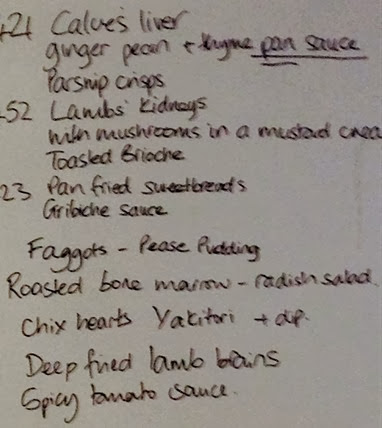 421 Calves liver
ginger pecan + thyme pan sauce
Parsnip crisps
52 Lambs' Kidneys
with mushrooms in a mustard crea
Toasted Brioche
23 Pan fried sweetbreads
Gribiche sauce
Faggots - Pease Pudding
Roasted bone marrow - radish salad.
Chix hearts Yakitori + dip.
Deep fried lamb brains
Spicy tomato sauce.